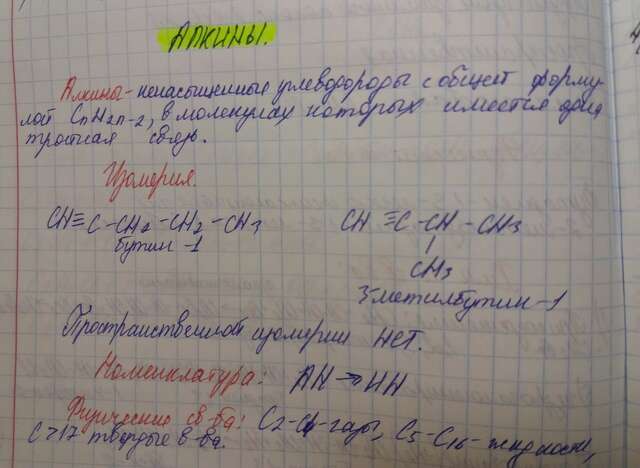 Алкины.
Алкины - ненасыщенные углеводороды с общей форму-
лой CnH2n-2, в молекулах которых имеется одна
тройная связь.
Изомерия.
CH≡C-CH2-CH2-CH3
бутин-1
CH≡C-CH-CH3
CH3
3-метилбутин-1
Пространственной изомерии нет.
Номенклатура: АН → ИН
Физические св-ва: C2-C4-газы, C5-C16-жидкости,
C>17 твердые в-ва.